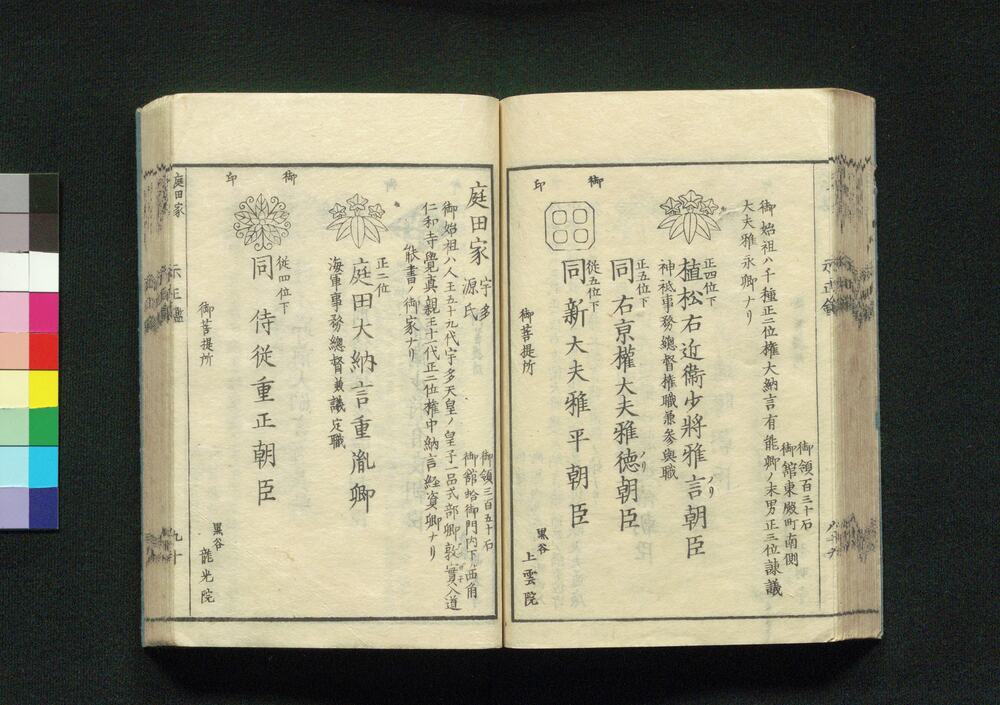 御領百三十石
御館東殿町南側
御始祖ハ千種正三位権大納言有能卿ノ末男正三位諌議
大夫雅永卿ナリ
正四位下
植松右近衞少将雅言朝臣
ノリ
神祇事務總督権職兼参與職
正五位下
同右京權大夫雅徳朝臣
ノリ
従五位下
同新大夫雅平朝臣
御印
御菩提所
黒谷
上雲院
庭田家
宇多
源氏
御領三百五十石
御館蛤御門内下ル西角
御始祖ハ人王五十九代宇多天皇ノ皇子一品式部卿敦實入道
仁和寺覺真親王十二代正二位権中納言経資卿ナリ
能書ノ御家ナリ
正二位
庭田大納言重胤卿
海軍事務總督兼議定職
従四位下
同侍従重正朝臣
御印
御菩提所
黒谷
龍光院
庭田家
九十